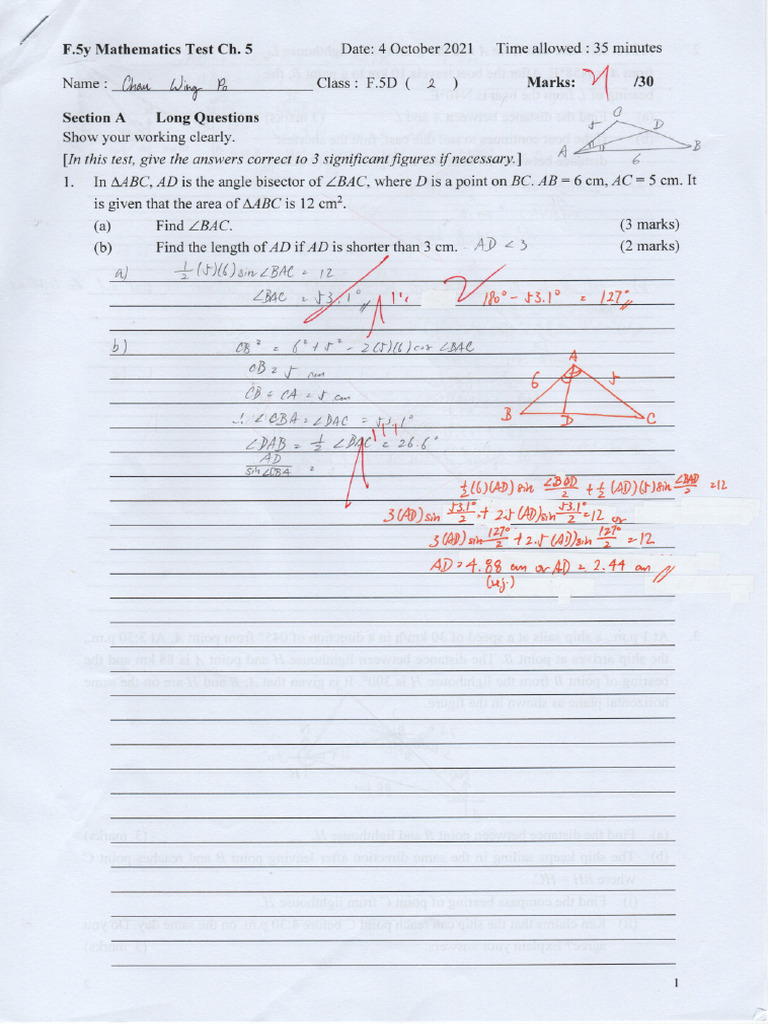 F.5y Mathematics Test Ch. 5 Date: 4 October 2021 Time allowed : 35 minutes
Name : Chau Wing Po Class : F.5D ( 2 ) Marks: /30
Section A Long Questions
Show your working clearly.
[In this test, give the answers correct to 3 significant figures if necessary.]
C
5
D
A
B
6
1. In ΔABC, AD is the angle bisector of ∠BAC, where D is a point on BC. AB = 6 cm, AC = 5 cm. It
is given that the area of ΔABC is 12 cm².
(a) Find ∠BAC. (3 marks)
(b) Find the length of AD if AD is shorter than 3 cm. AD < 3 (2 marks)
a) ½ (5)(6) sin ∠BAC = 12
∠BAC = 53.1° 180° − 53.1° = 127°
b) CB² = 6² + 5² − 2(5)(6) cos ∠BAC
CB = 5 cm
CB = CA = 5 cm
∴ ∠CBA = ∠DAC = 53.1°
∠DAB = ½ ∠BAC = 26.6°
AD / sin ∠CBA =
A
6 5
B D C
½(6)(AD) sin ∠BAD/2 + ½(AD)(5) sin ∠BAD/2 = 12
3(AD) sin 53.1°/2 + 2.5(AD) sin 53.1°/2 = 12 or
3(AD) sin 127°/2 + 2.5(AD) sin 127°/2 = 12
AD = 4.88 cm or AD = 2.44 cm
(rej.)
1